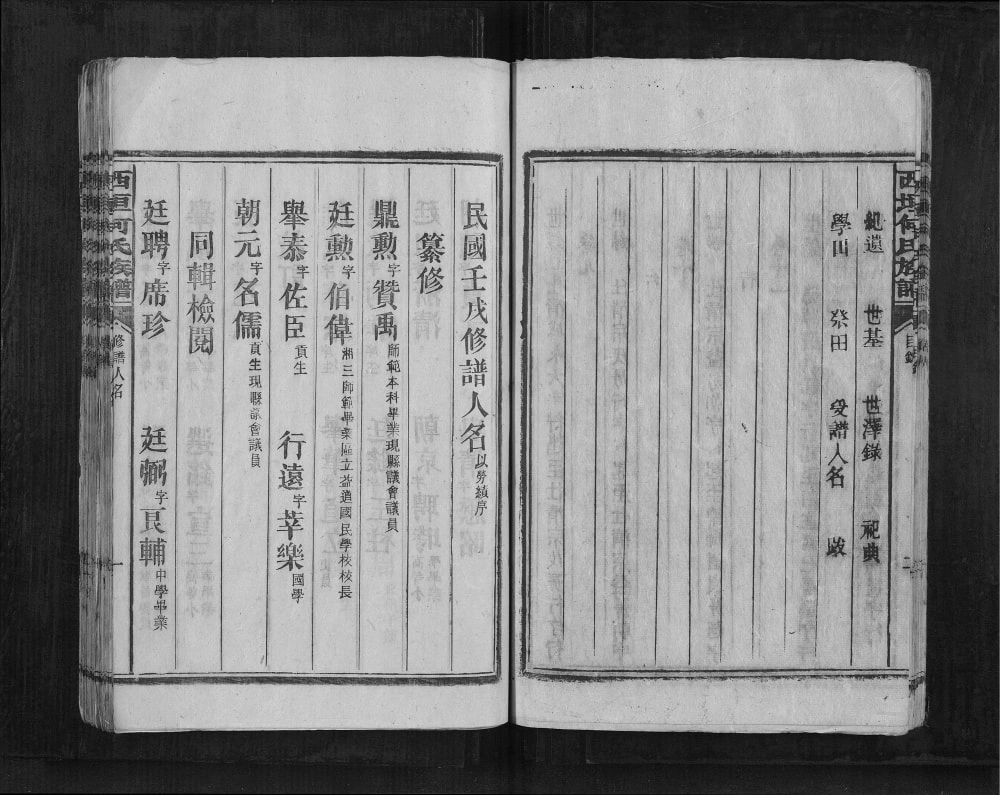 西垣何氏族譜
目錄
二
祀遺 世基 世澤錄 祀典
學田 祭田 受譜人名 跋
民國壬戌修譜人名以勞績序
纂修
鼎勲字贊禹師範本科畢業現縣議會議員
廷勲字伯偉湘三師範畢業區立益道國民學校校長
舉泰字佐臣貢生 行遠字莘樂國學
朝元字名儒貢生現縣議會議員
同輯檢閱
廷聘字席珍 廷弼字良輔中學畢業
西垣何氏族譜
修譜人名
一